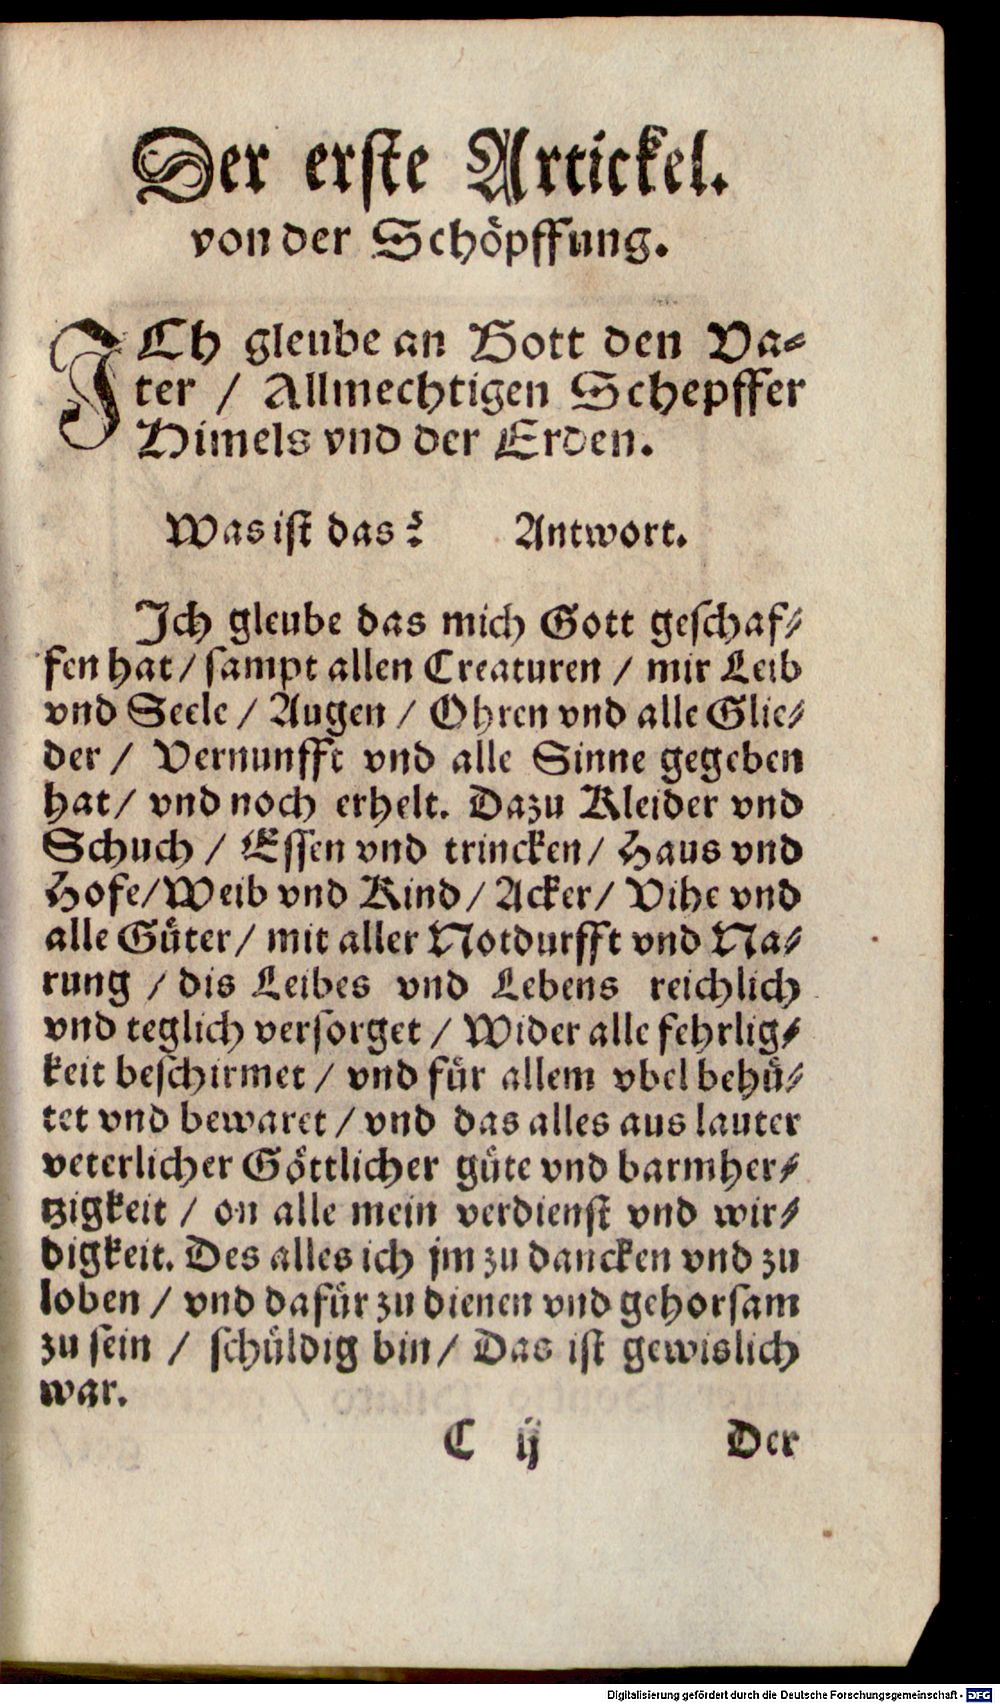 Der erste Artickel.
von der Schöpffung.
ICh gleube an Gott den Va-
ter / Allmechtigen Schepffer
Himels vnd der Erden.
Was ist das? Antwort.
Ich gleube das mich Gott geschaf-
fen hat / sampt allen Creaturen / mir Leib
vnd Seele / Augen / Ohren vnd alle Glie-
der / Vernunfft vnd alle Sinne gegeben
hat / vnd noch erhelt. Dazu Kleider vnd
Schuch / Essen vnd trincken / Haus vnd
Hofe / Weib vnd Kind / Acker / Vihe vnd
alle Güter / mit aller Notdurfft vnd Na-
rung / dis Leibes vnd Lebens reichlich
vnd teglich versorget / Wider alle fehrlig-
keit beschirmet / vnd für allem vbel behü-
tet vnd bewaret / vnd das alles aus lauter
veterlicher Göttlicher güte vnd barmher-
tzigkeit / on alle mein verdienst vnd wir-
digkeit. Des alles ich jm zu dancken vnd zu
loben / vnd dafür zu dienen vnd gehorsam
zu sein / schüldig bin / Das ist gewislich
war.
C ij Der
Digitalisierung gefördert durch die Deutsche Forschungsgemeinschaft - DFG